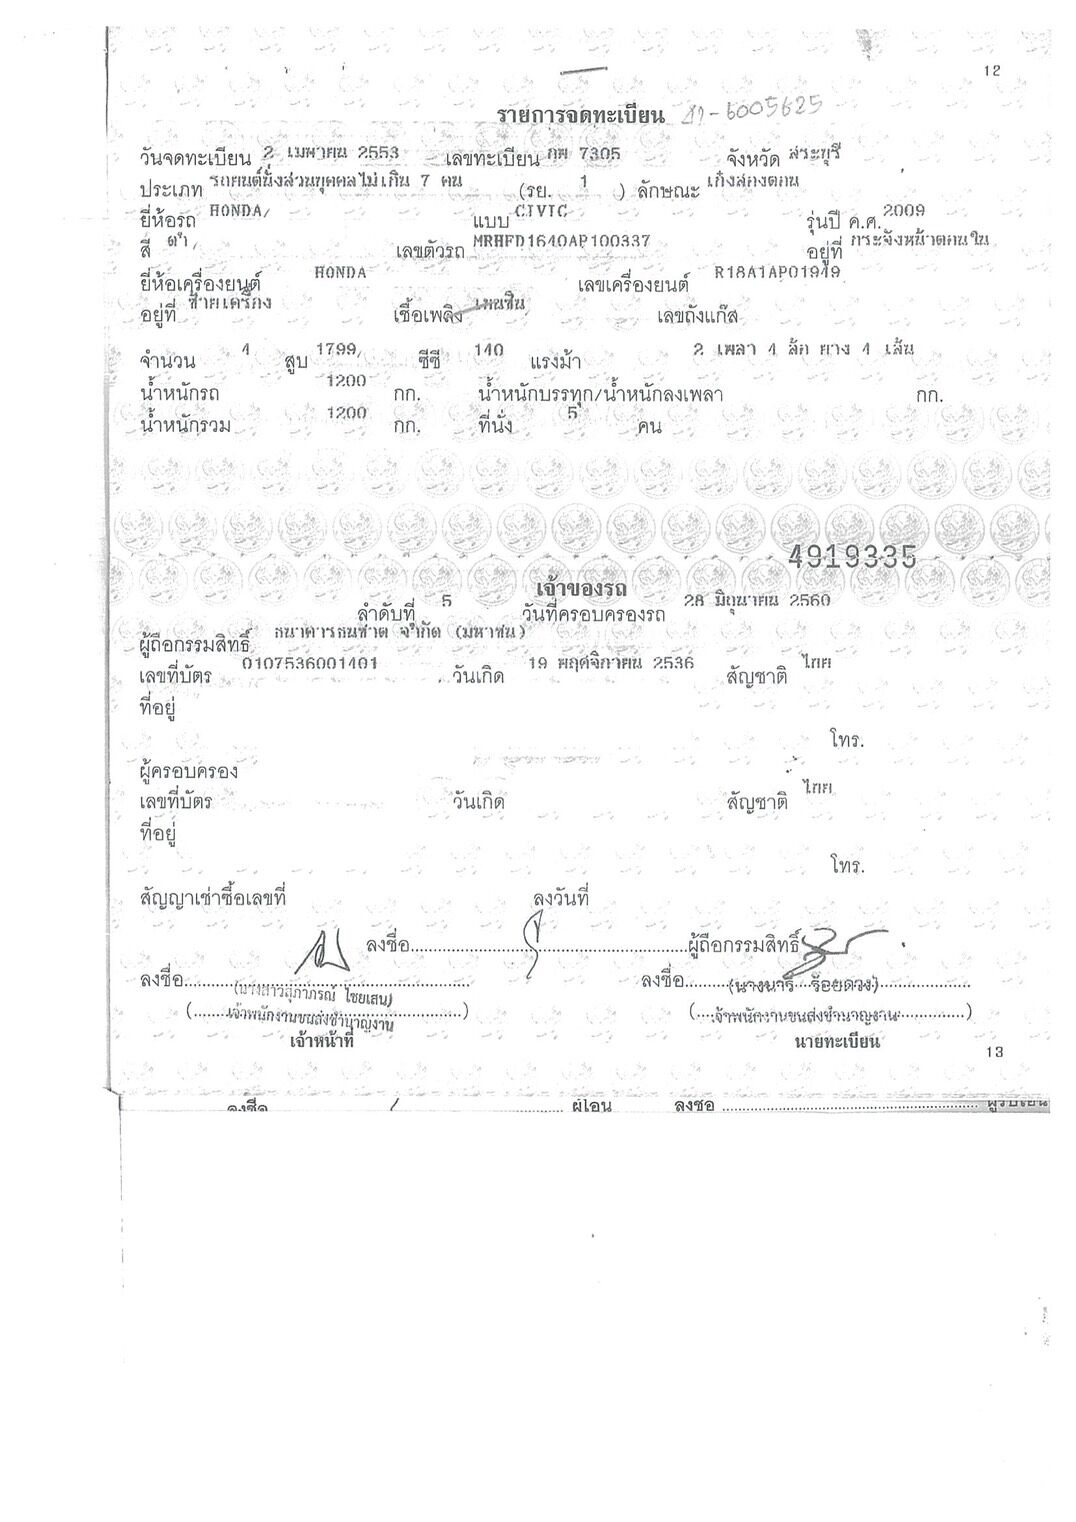 12
รายการจดทะเบียน 41-6005625
วันจดทะเบียน 2 เมษายน 2553 เลขทะเบียน กพ 7305 จังหวัด สระบุรี
ประเภท รถยนต์นั่งส่วนบุคคลไม่เกิน 7 คน (รย. 1 ) ลักษณะ เก๋งสองตอน
ยี่ห้อรถ HONDA/ แบบ CIVIC รุ่นปี ค.ศ. 2009
สี ดำ/ เลขตัวรถ MRHFD1640AP100337 อยู่ที่ กระจังหน้าตอนใน
ยี่ห้อเครื่องยนต์ HONDA เลขเครื่องยนต์ R18A1AP01949
อยู่ที่ ซ้ายเครื่อง เชื้อเพลิง เบนซิน เลขถังแก๊ส
จำนวน 4 สูบ 1799/ ซีซี 140 แรงม้า 2 เพลา 4 ล้อ ยาง 4 เส้น
น้ำหนักรถ 1200 กก. น้ำหนักบรรทุก/น้ำหนักลงเพลา กก.
น้ำหนักรวม 1200 กก. ที่นั่ง 5 คน
4919335
เจ้าของรถ
ลำดับที่ 5 วันที่ครอบครองรถ 28 มิถุนายน 2560
ผู้ถือกรรมสิทธิ์ ธนาคารธนชาต จำกัด (มหาชน)
เลขที่บัตร 0107536001401 วันเกิด 19 พฤศจิกายน 2536 สัญชาติ ไทย
ที่อยู่
โทร.
ผู้ครอบครอง
เลขที่บัตร วันเกิด สัญชาติ ไทย
ที่อยู่
โทร.
สัญญาเช่าซื้อเลขที่ ลงวันที่
ลงชื่อ ผู้ถือกรรมสิทธิ์
ลงชื่อ ลงชื่อ
(นางสาวสุภาภรณ์ ไชยเสน) (นางนารี ร้อยดวง)
(เจ้าพนักงานขนส่งชำนาญงาน) (เจ้าพนักงานขนส่งชำนาญงาน)
เจ้าหน้าที่ นายทะเบียน
13
ลงชื่อ ผู้โอน ลงชื่อ ผู้รับโอน